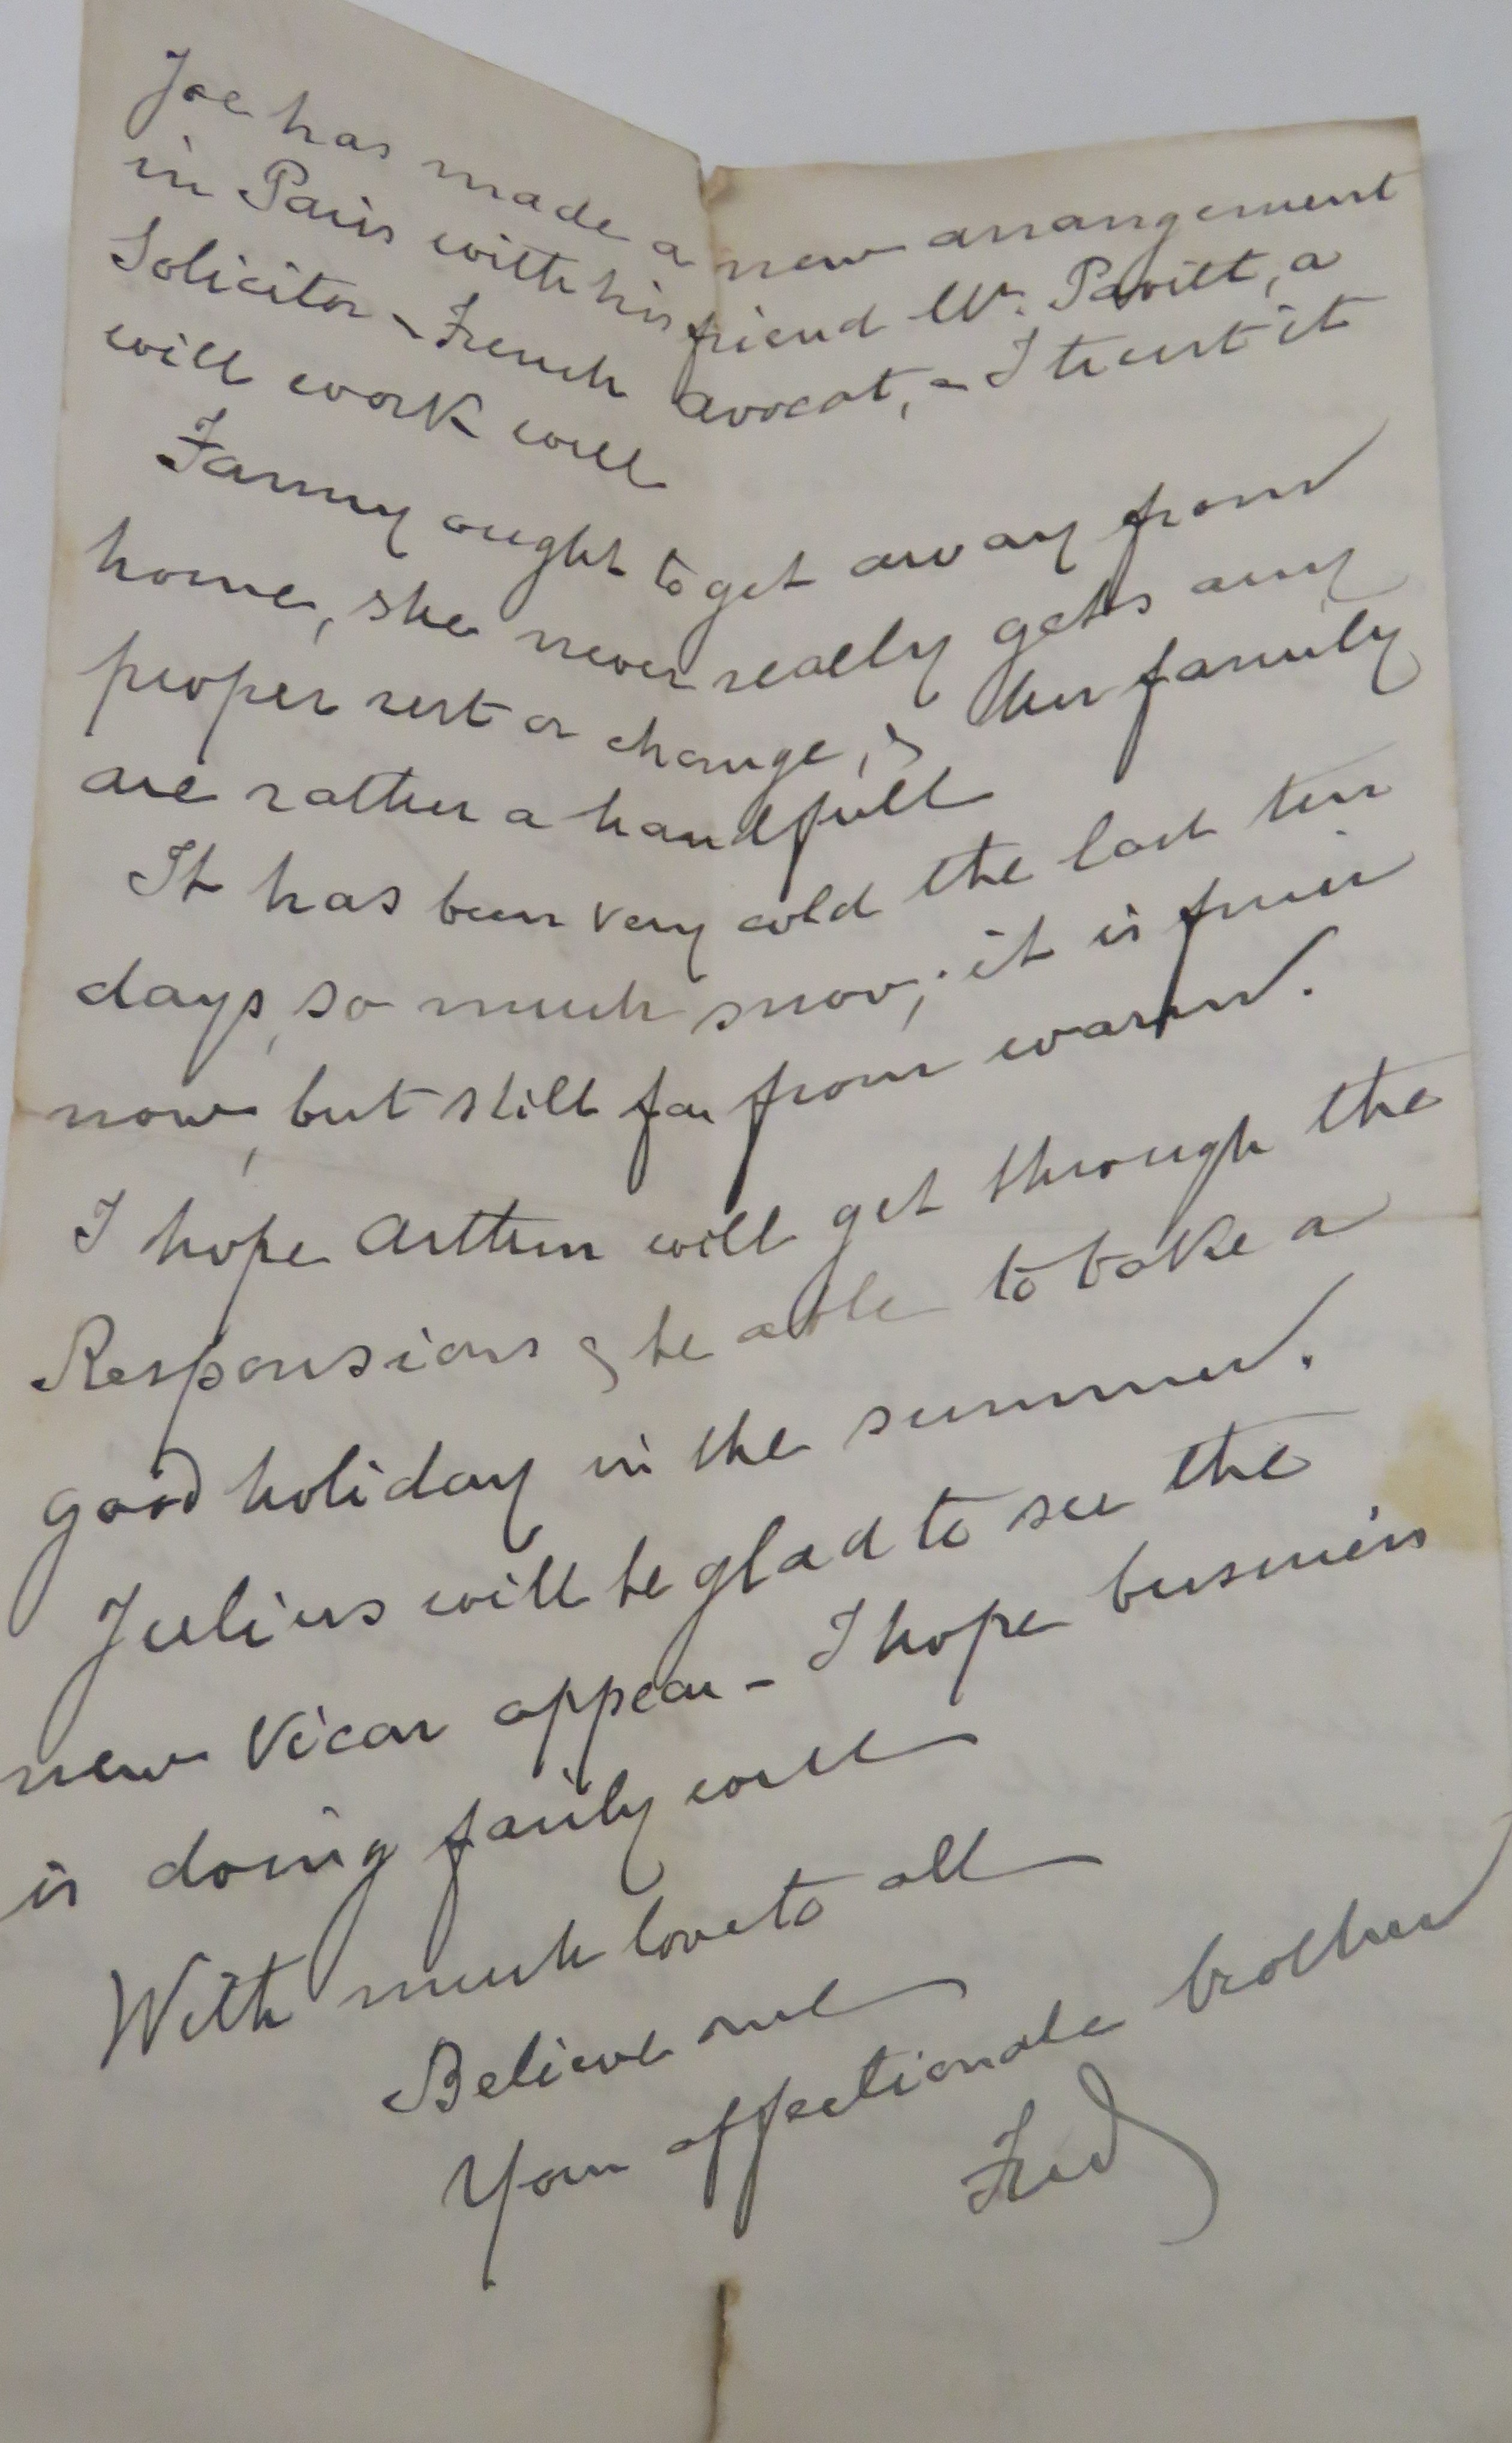 Joe has made a new arrangement
in Paris with his friend Mr. Pavitt, a
Solicitor - French avocat, - I trust it
will work well
Fanny ought to get away from
home, she never really gets any
proper rest or change, & her family
are rather a handfull
It has been very cold the last ten
days, so much snow; it is finer
now, but still far from warm.
I hope Arthur will get through the
Responsions & be able to take a
good holiday in the summer.
Julius will be glad to see the
new Vicar appear - I hope business
is doing fairly well
With much love to all
Believe me
Your affectionate brother
Fred